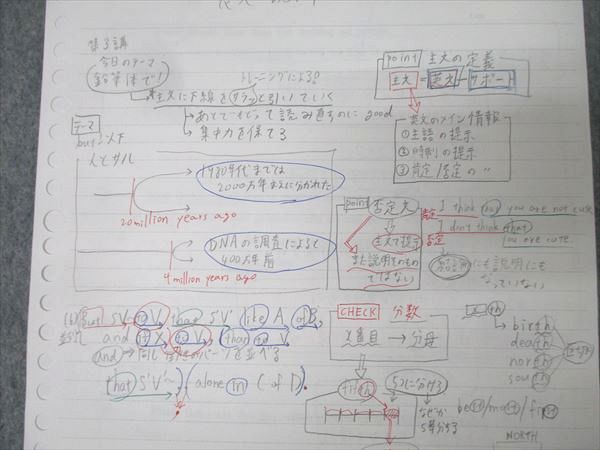 第3講
今日のテーマ
鉛筆1本で!
トレーニングによる?
主文に下線をサラーッと引いていく
あとでもどって読み直すのに good
集中力を保てる
point 主文の定義
主文 = 英文 - サポート
英文のメイン情報
①主語の提示
②時制の提示
③肯定/否定の 〃
テーマ
but以下
人とサル
1980年代までは
2000万年まえに分かれた
20 million years ago
DNAの調査によると
400万年前
4 million years ago
point 否定文
主文で提示
まだ説明そのもの
ではない
I think you are not cute.
don't think that
you are cute.
にも説明にも
なっていない
(b) But SV to V that S'V' like A of B,
and to V that V
and → 同じ パーツを並べる
that S'V'~, (alone in C of D).
CHECK 分数
→ 分母
5つに分ける
なぜか
5等分する
th
birth
death
north
south
best/most/first
NORTH